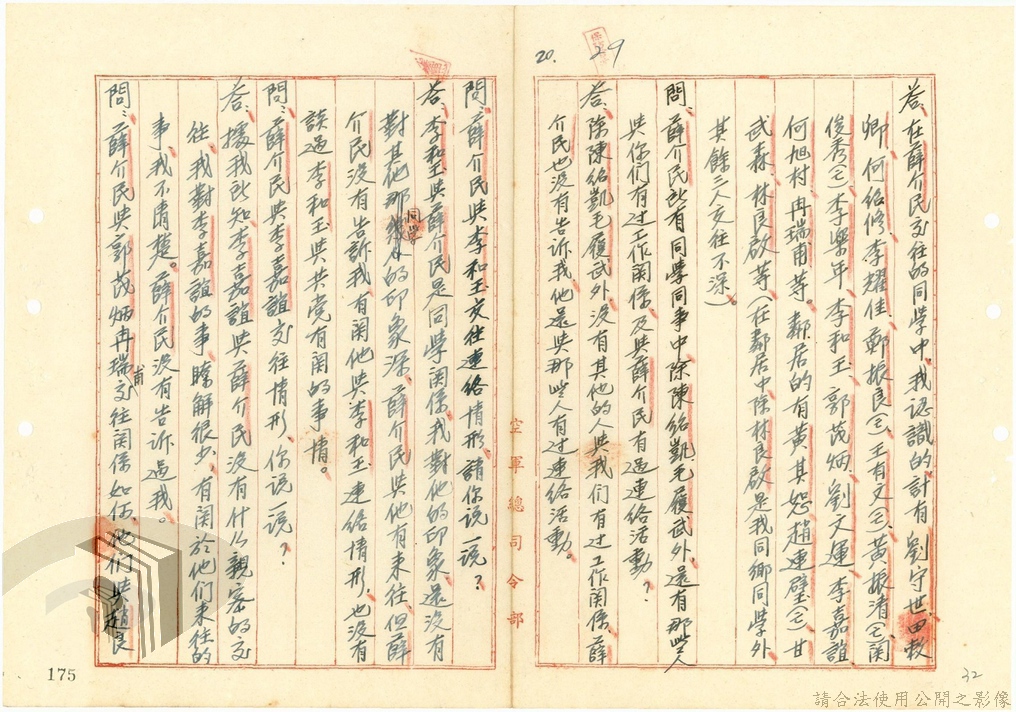 20.
29
答、在薛介民交往的同學中、我認識的、計有劉守世、田敕
卿、何紹修、李耀佳、鄭振良(亡)、王有文(亡)、黃振清(亡)、関
俊秀(亡)、李榮年、李和玉、郭茂炳、劉文運、李嘉誼
何旭村、冉瑞甫等。鄰居的有黃其恕、趙連璧(亡)、甘
武森、林良啟等(在鄰居中除林良啟是我同鄉同學外
其餘三人交往不深)。
問：薛介民所有同學同事中、除陳紹凱毛履武外、還有那些人
與你们有过工作関係、及與薛介民有過連络活動？
答、除陳紹凱毛履武外、没有其他的人與我们有过工作関係、薛
介民也没有告诉我、他還與那些人有过連络活動。
空軍總司令部
問：薛介民與李和玉交往連络情形、請你説一説？
答、李和玉與薛介民是同學関係、我對他的印象還没有
對其他那幾位同學的印象深、薛介民與他有来往、但薛
介民没有告訴我有関他與李和玉連络情形、也没有
談過李和玉與共党有関的事情。
問：薛介民與李嘉誼交往情形、你説一説？
答：據我所知、李嘉誼與薛介民没有什么親密的交
往、我對李嘉誼的事、瞭解很少、有関於他们来往的
事、我不清楚。薛介民没有告诉過我。
問：薛介民與郭茂炳冉瑞甫交往関係如何、他们與趙良
175
32
請合法使用公開之影像